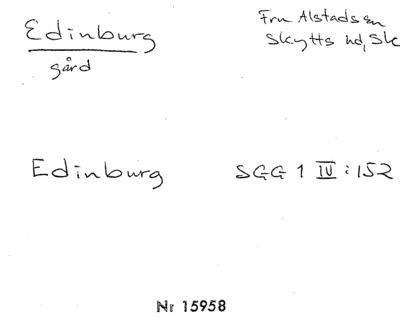 Edinburg
gård
Fru Alstads sn
Skytts hd, Sk
Edinburg
SGG 1 IV : 152
Nr 15958